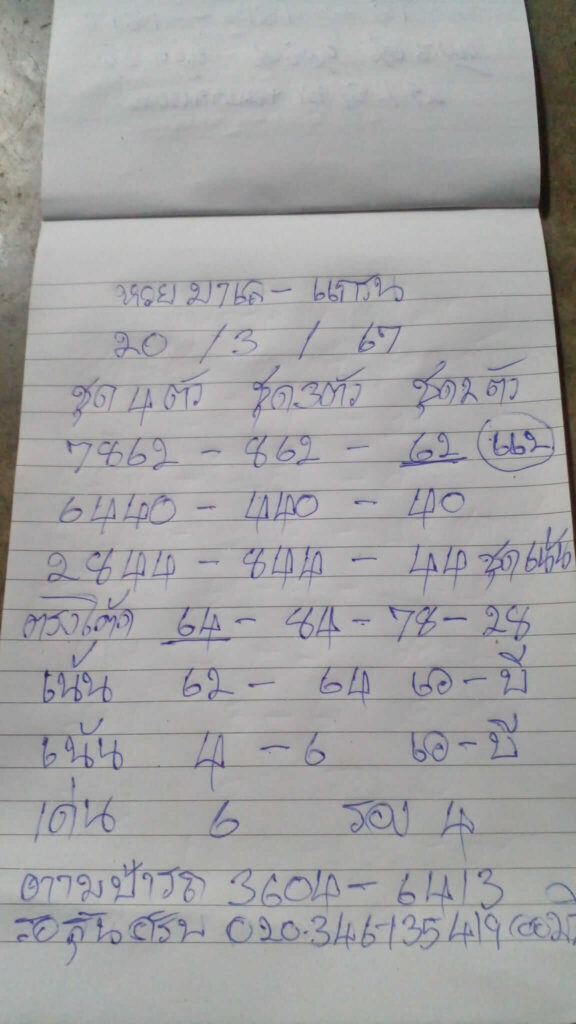 หวย มาเล - แกรน
20 / 3 / 67
ชุด 4 ตัว ชุด 3 ตัว ชุด 2 ตัว
7862 - 862 - 62 662
6440 - 440 - 40
2844 - 844 - 44 ชุดเน้น
ตรงโต๊ด 64 - 84 - 78 - 28
เน้น 62 - 64 เอ - บี
เน้น 4 - 6 เอ - บี
เด่น 6 รอง 4
ตามป้ายรถ 3604 - 6413
020-346-135419